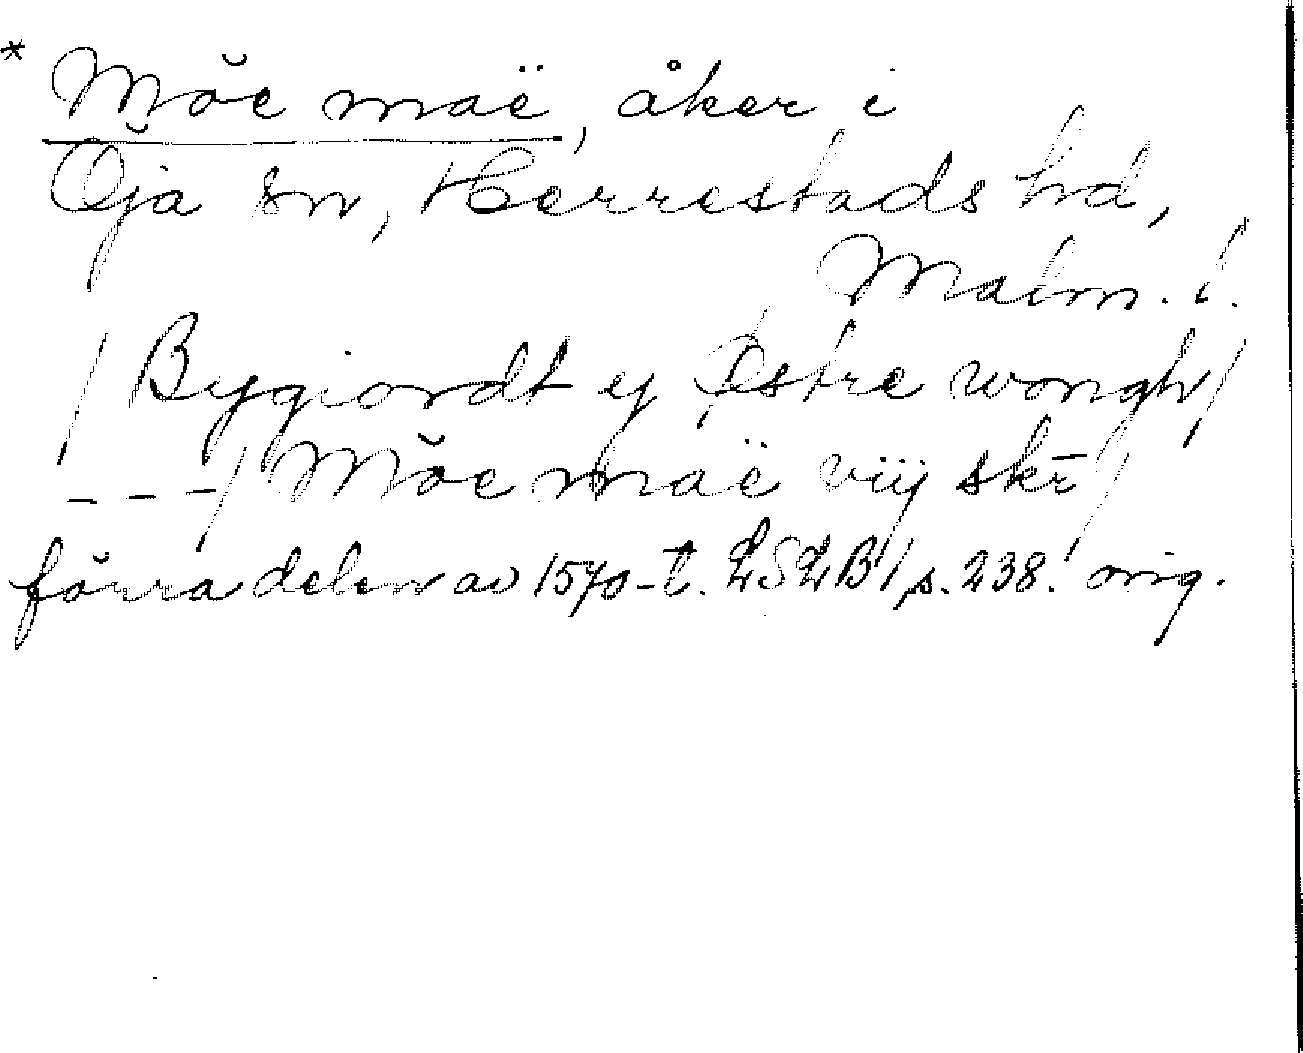 * Mŏe maë, åker i
Öja sn, Herrestads hd,
Malm. l.
/ Bygiordt ej Østre wongh /
- - - / Mŏe maë viij skr̄ /
förra delen av 1570-t. LSLB 1, s. 238. orig.